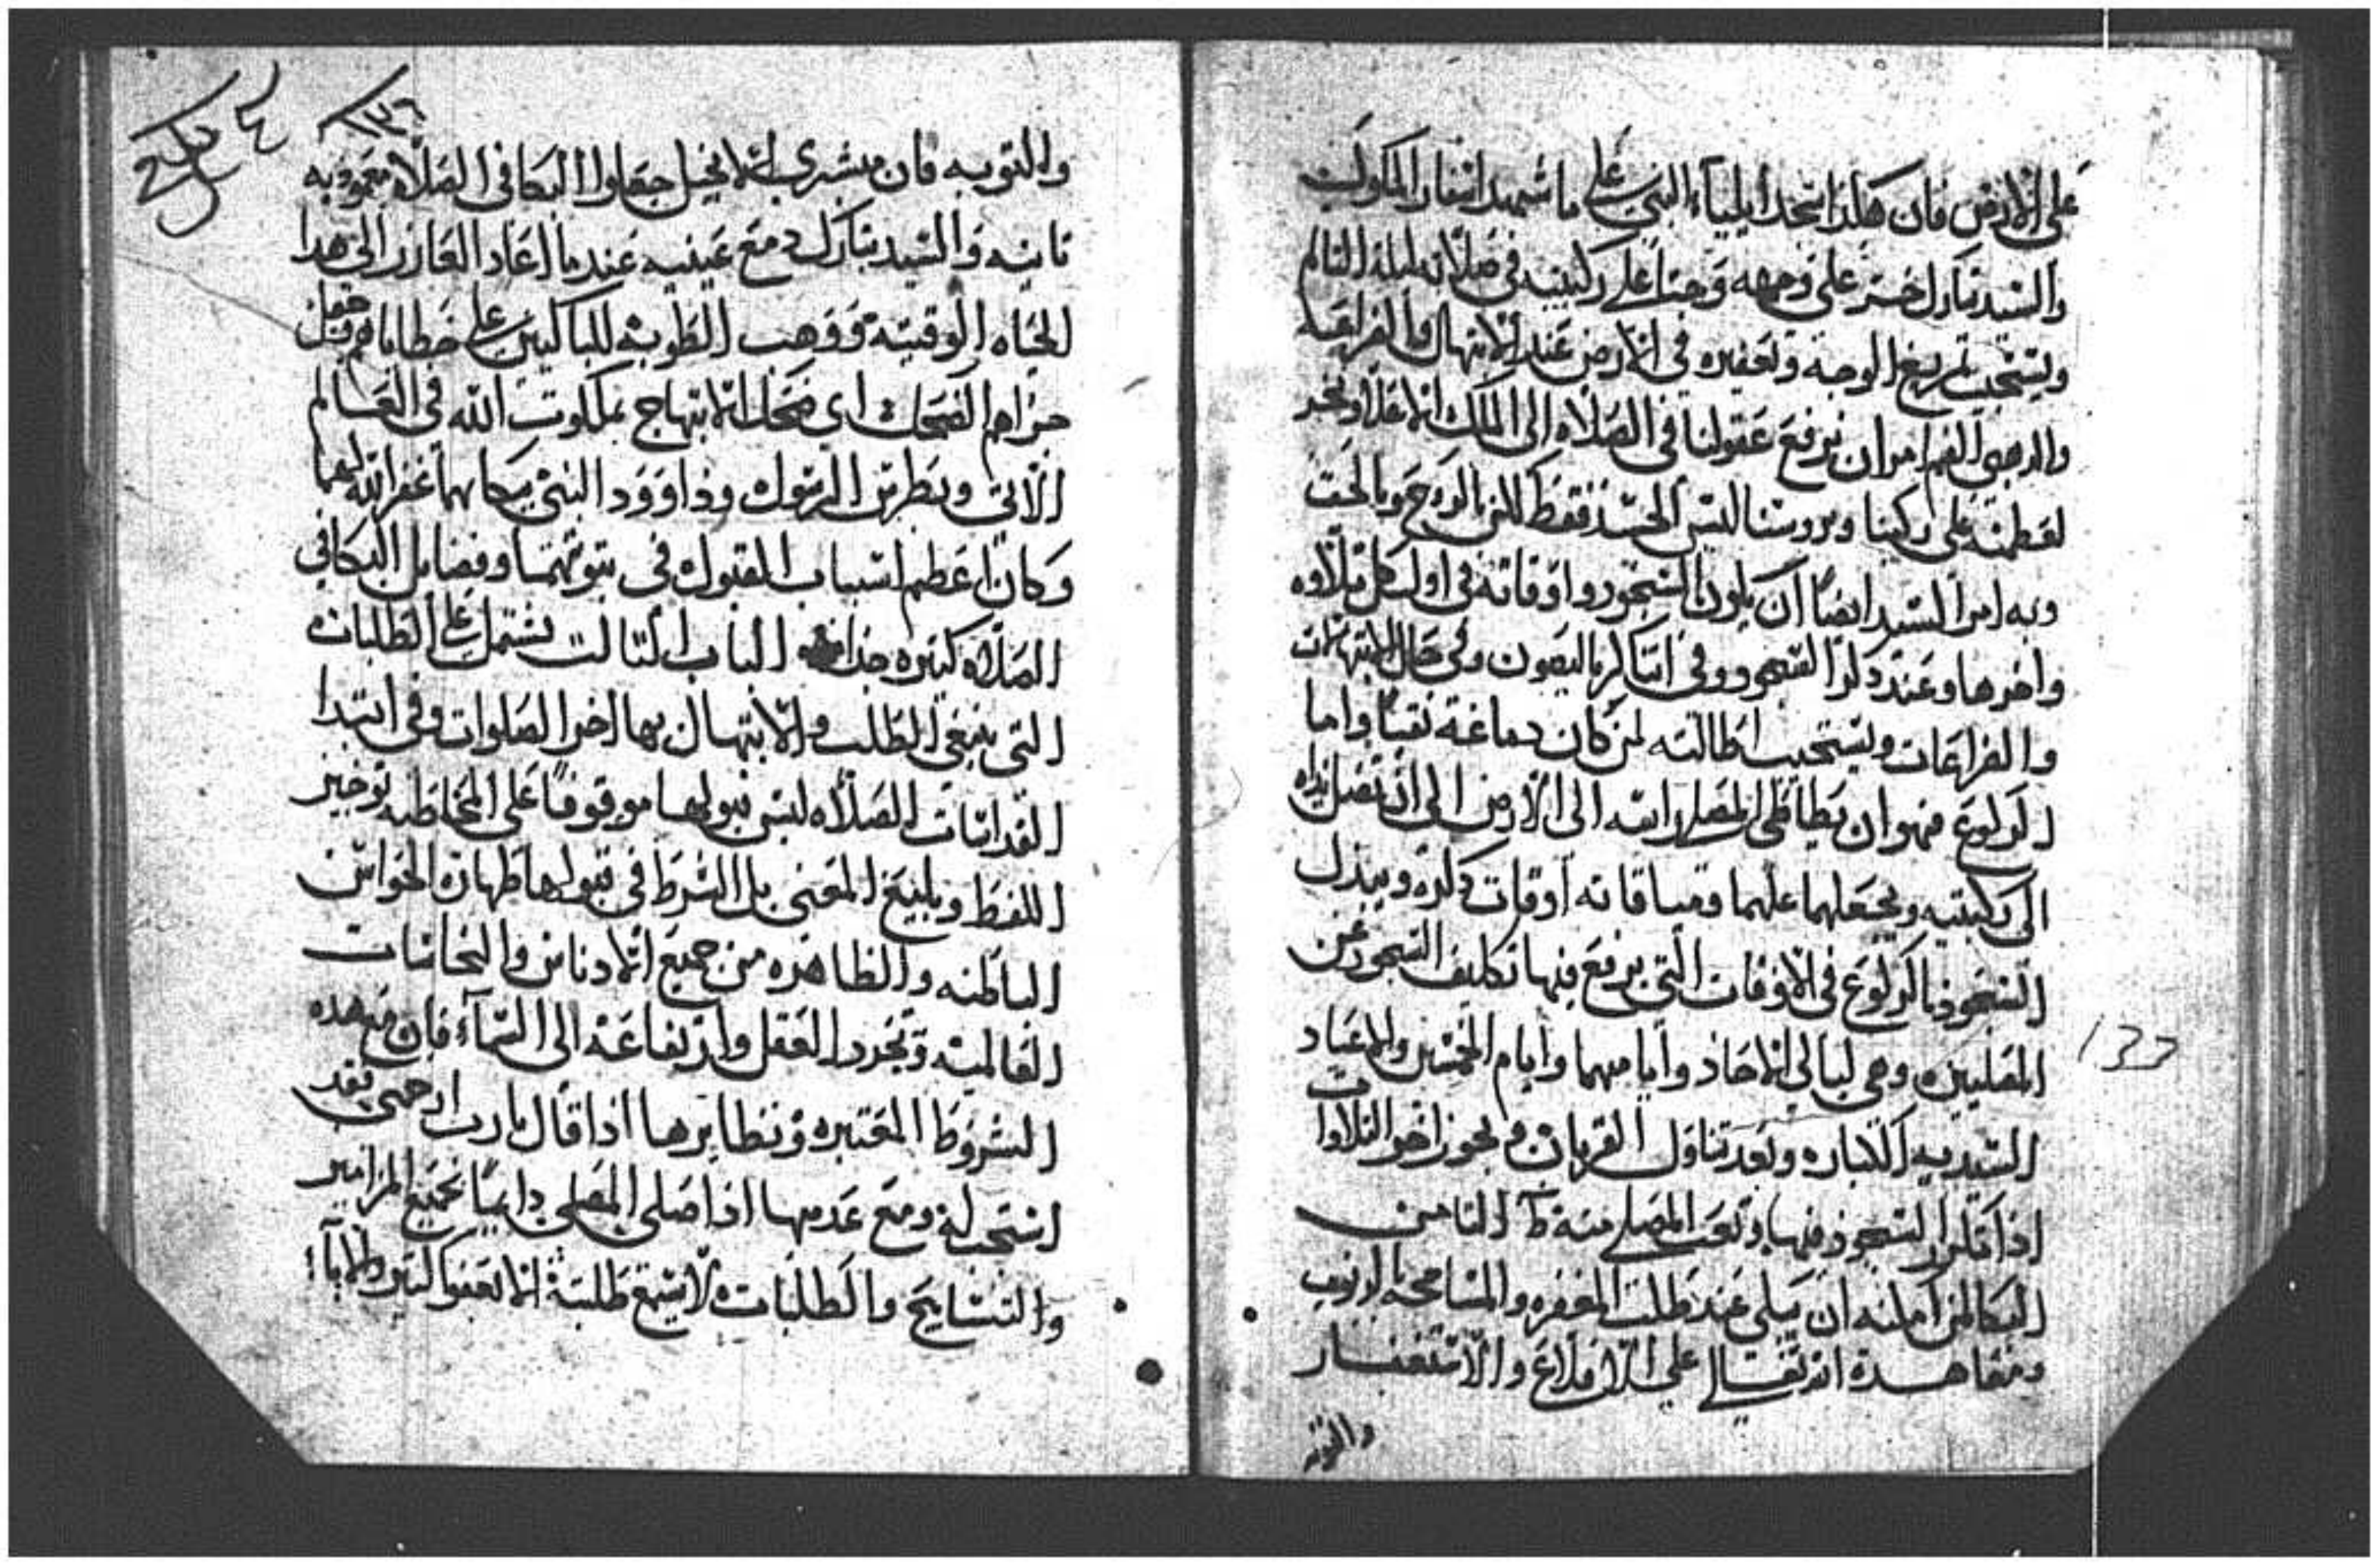 على الارض فان هكذا سجد ايلياء النبي على ما شهد اسفار الملوك
والسيد تبارك خر على وجهه وجثا على ركبتيه في صلاته ليلة التالم
ويستحب تمريغ الوجه وتعفيره في الارض عند الابتهال والضراعه
والدهبي الفم امر ان نرفع عقولنا في الصلاه الى الملك الاعلا ونخر
لعظمته على ركبنا وبروسنا ليس الجسد فقط لكن بالروح وبالحق
وبه امر السيد ايضا ان يكون السجود واوقاته في اول كل صلاه
واخرها وعند ذكر السجود وفي حال الابتهالات
والضراعات ويستحب اطالته لمن كان دماغه نقيا واما
الركوع فهو ان يطاطي المصلي راسه الى الارض الى ان تصل يداه
الى ركبتيه ويجعلهما عليهما وميقاته اوقات ذكره ويبدل
السجود بالركوع في الاوقات التي يرفع فيها تكليف السجود عن
المصليين وهي ليالي الاحاد وايامهما وايام الخمسين والاعياد
السيديه الكبار وبعد تناول القربان ويجوز اخر التلاوات
اذا السجود فيها وتعب المصلي منه الثامن
البكا لمن امكنه ان يبكي عند طلب المغفره والمسامحه بالذنوب
ومعاهدة الله تعالى على الاقلاع والاستغفار
والتوبه
133
١٣٤
والتوبه فان مبشري الانجيل جعلوا البكا في الصلاه معموديه
ثانيه والسيد تبارك دمع عينيه عندما اعاد العازر الى هدا
الحياه الوقتيه ووهب الطوبى للباكيين على خطاياهم وجعل
جزاهم الضحك اي ضحك الابتهاج بملكوت الله في العالم
الاتي وبطرس الرسول وداوود النبي ببكايهما غفر الله لهما
وكان اعظم اسباب القبول في توبتهما وفضايل البكا في
الصلاه كثيره جدا الباب الثالث يشتمل على الطلبات
التي ينبغي الطلب والابتهال بها اخر الصلوات وفي ابتدا
القداسات الصلاه ليس قبولها موقوفا على المخاطبه بوجيز
اللفظ وبليغ المعنى بل الشرط في قبولها طهارة الحواس
الباطنه والظاهره من جميع الادناس والنجاسات
العالميه وتجرد العقل وارتفاعه الى السماء فان مع هده
الشروط المعتبره ونظايرها اذا قال يارب ارحمني فقد
استجب له ومع عدمها اذا صلى المصلي دايما بجميع المزامير
والتسابيح والطلبات لا يسمع طلبة